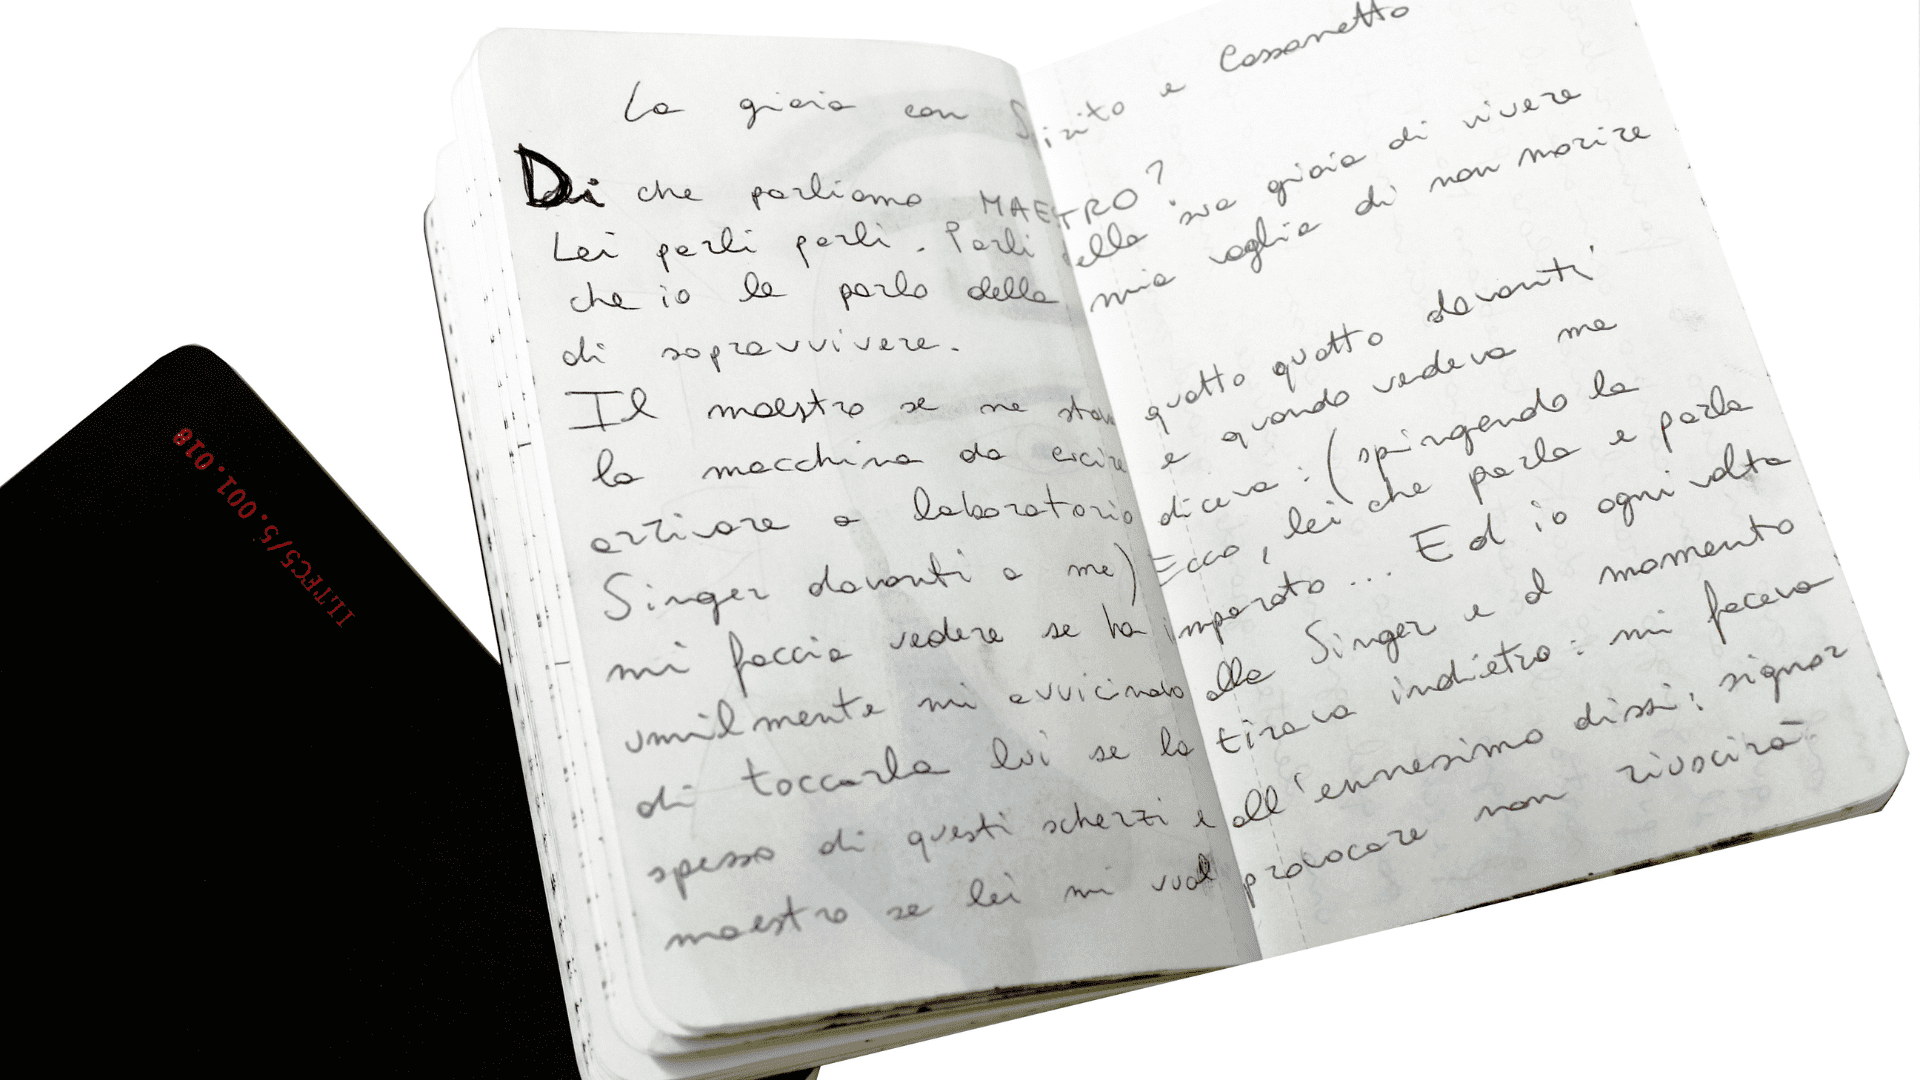 La gioia con Spirito e Cassonetto
Di che parliamo MAESTRO?
Lei parli parli. Parli della sua gioia di vivere
che io le parlo della mia voglia di non morire
di sopravvivere.
Il maestro se ne stava quatto quatto davanti
la macchina da cucire e quando vedeva me
arrivare a laboratorio diceva: (spingendo la
Singer davanti a me) Ecco, lei che parla e parla
mi faccia vedere se ha imparato... Ed io ogni volta
umilmente mi avvicinavo alla Singer e al momento
di toccarla lui se la tirava indietro: mi faceva
spesso di questi scherzi e all'ennesimo dissi: signor
maestro se lei mi vuol provocare non riuscirà
ILTFC5/5.001.018